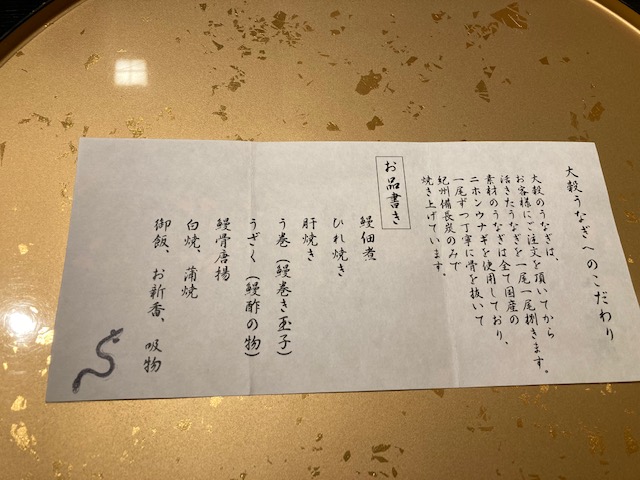 大穀うなぎへのこだわり
大穀のうなぎは、
お客様にご注文を頂いてから
活きたうなぎを一尾一尾捌きます。
素材のうなぎは全て国産の
ニホンウナギを使用しており、
一尾ずつ丁寧に骨を抜いて
紀州備長炭のみで
焼き上げています。
お品書き
鰻佃煮
ひれ焼き
肝焼き
う巻(鰻巻き玉子)
うざく(鰻酢の物)
鰻骨唐揚
白焼、蒲焼
御飯、お新香、吸物